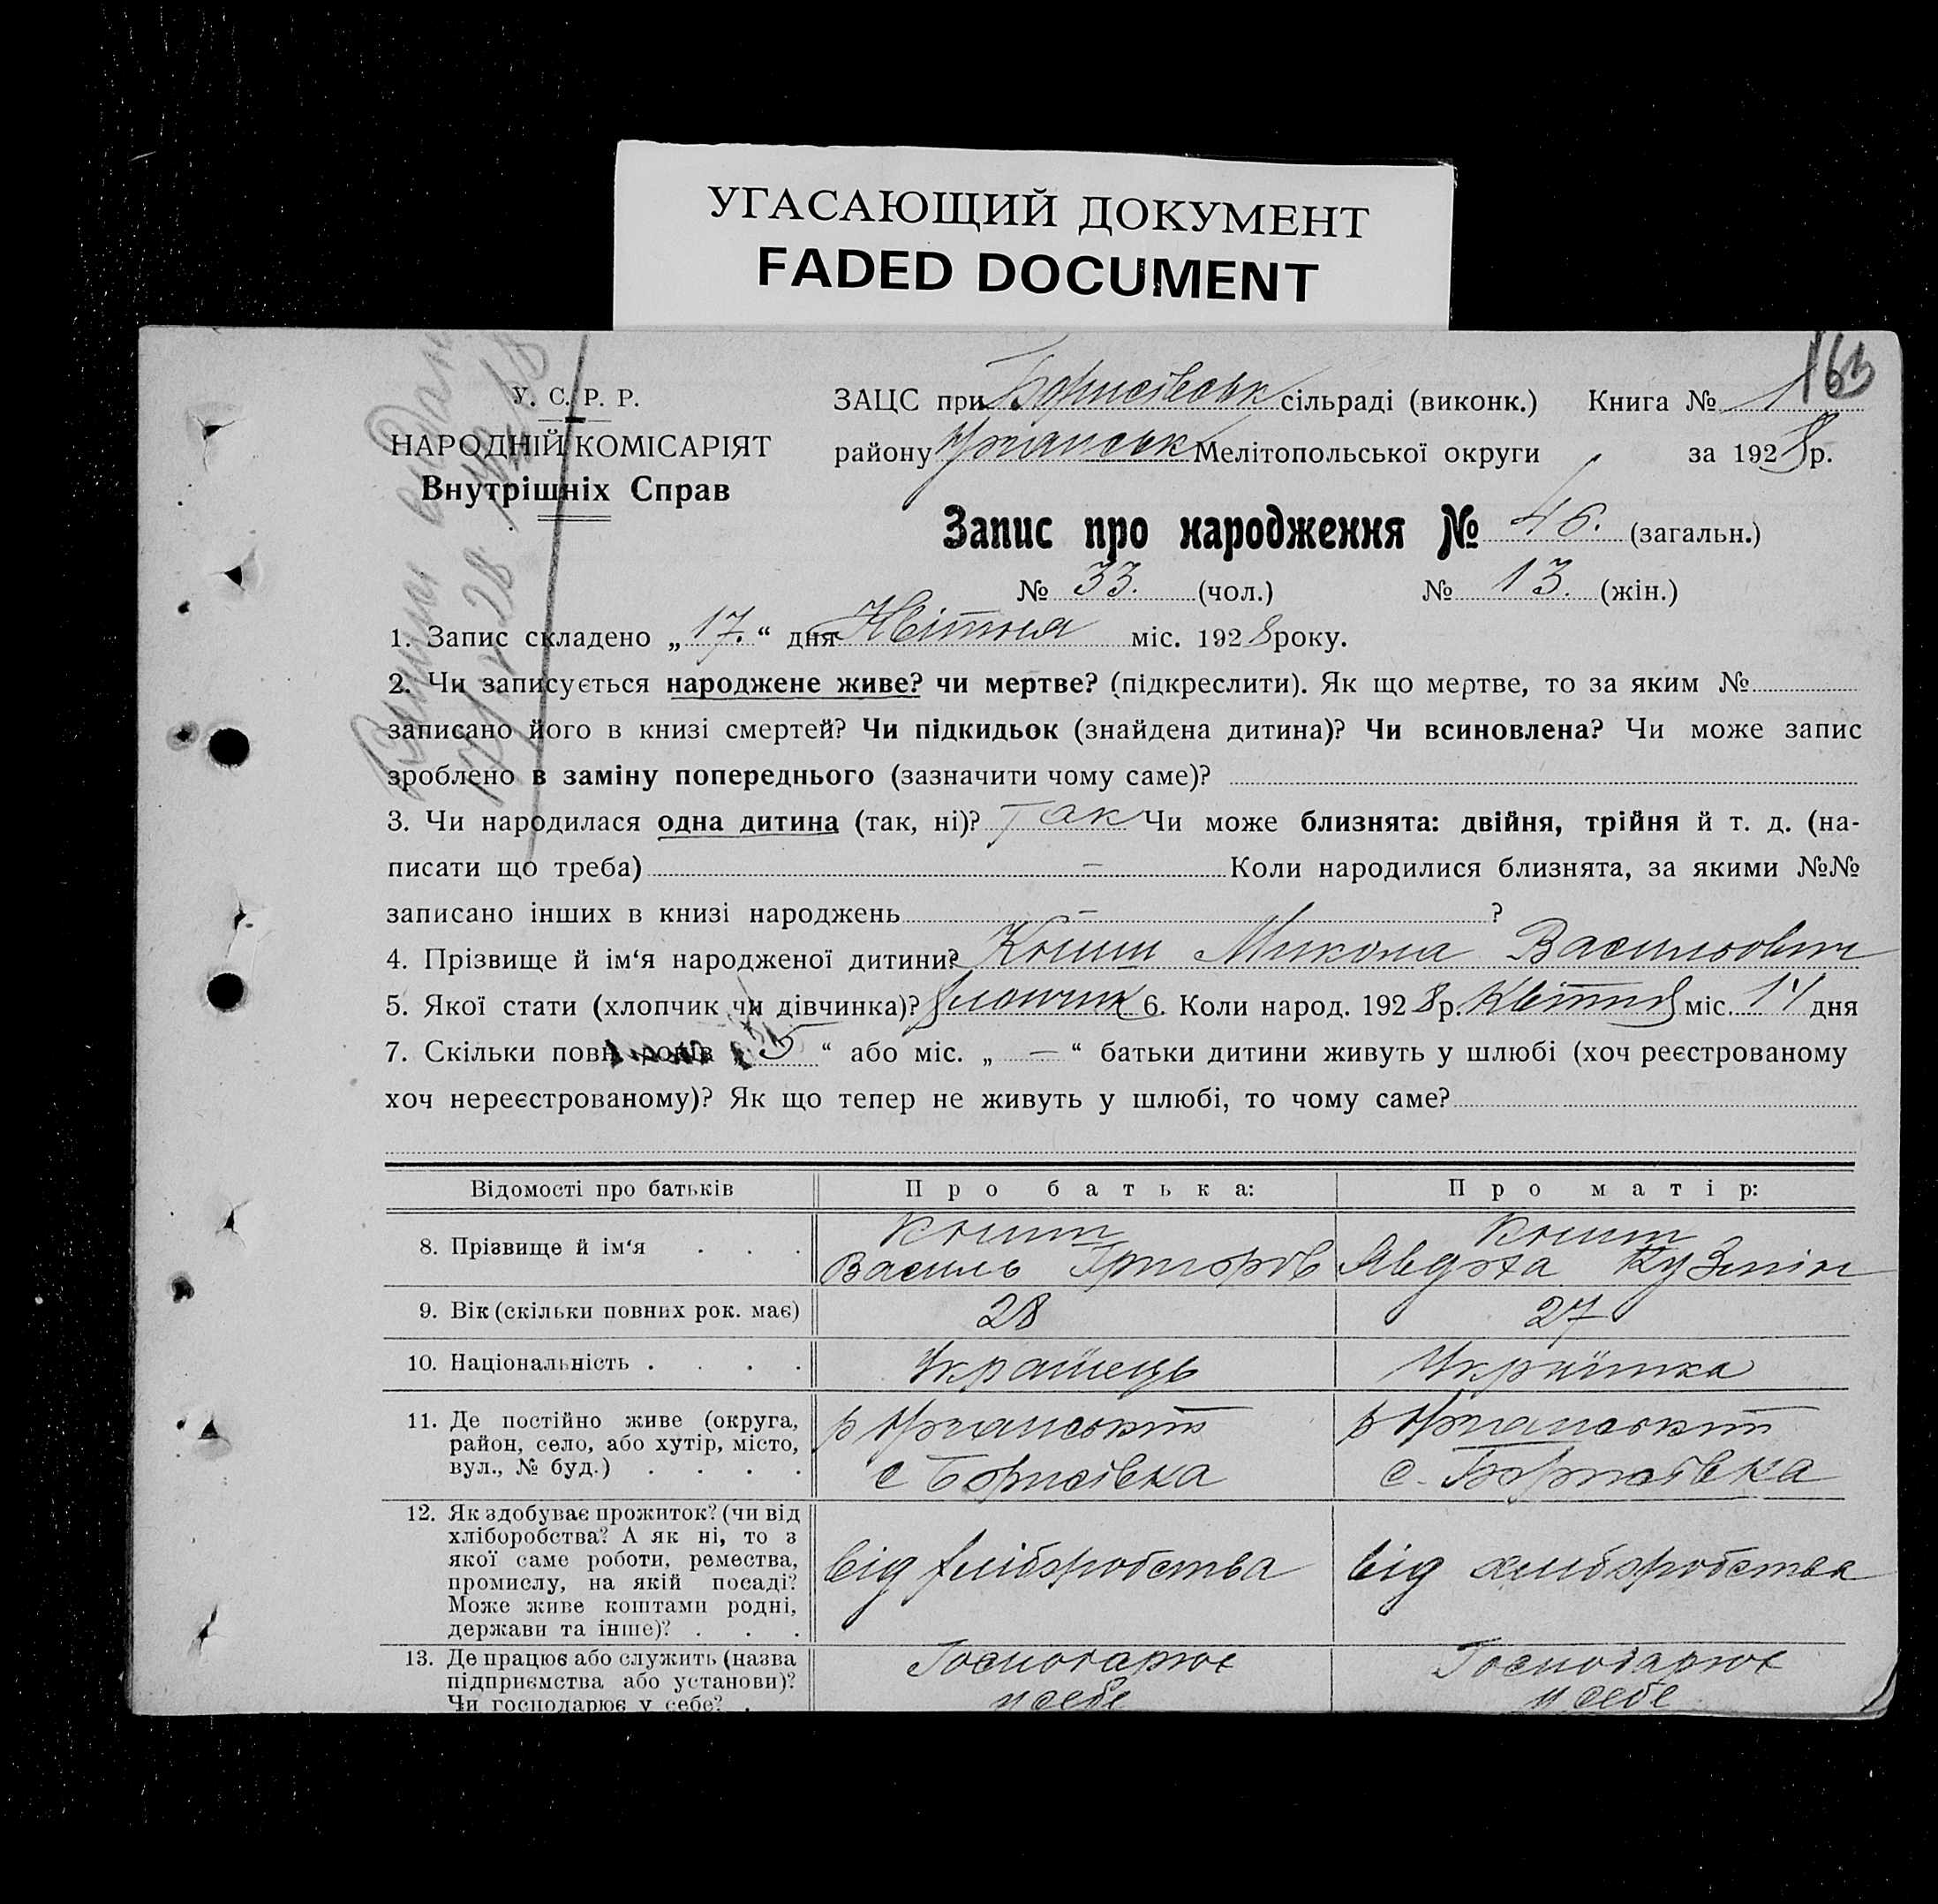 УГАСАЮЩИЙ ДОКУМЕНТ
FADED DOCUMENT
163
У. С. Р. Р.
НАРОДНІЙ КОМІСАРІЯТ
Внутрішніх Справ
ЗАЦС при Борисівськ сільраді (виконк.) Книга № 1
району Мелітопольської округи за 1928 р.
Запис про народження № 46. (загальн.)
№ 33. (чол.) № 13. (жін.)
1. Запис складено „17.“ дня Квітня міс. 1928 року.
2. Чи записується народжене живе? чи мертве? (підкреслити). Як що мертве, то за яким №
записано його в книзі смертей? Чи підкидьок (знайдена дитина)? Чи всиновлена? Чи може запис
зроблено в заміну попереднього (зазначити чому саме)?
3. Чи народилася одна дитина (так, ні)? Так Чи може близнята: двійня, трійня й т. д. (на-
писати що треба) — Коли народилися близнята, за якими №№
записано інших в книзі народжень — ?
4. Прізвище й ім‘я народженої дитини? Книш Микола Васильович
5. Якої стати (хлопчик чи дівчинка)? хлопчик 6. Коли народ. 1928 р. Квітня міс. 14 дня
7. Скільки повн. років „5“ або міс. „—“ батьки дитини живуть у шлюбі (хоч реєстрованому
хоч нереєстрованому)? Як що тепер не живуть у шлюбі, то чому саме?
Відомості про батьків Про батька: Про матір:
8. Прізвище й ім‘я . . . Книш Василь Григоров Книш Явдоха Кузмін
9. Вік (скільки повних рок. має) 28 27
10. Національність . . . . Українець Українка
11. Де постійно живе (округа,
район, село, або хутір, місто,
вул., № буд.) . . . .
с Борисівка с. Борисівка
12. Як здобуває прожиток? (чи від
хліборобства? А як ні, то з
якої саме роботи, ремества,
промислу, на якій посаді?
Може живе коштами родні,
держави та інше)? . . .
від хліборобства від хліборобства
13. Де працює або служить (назва
підприємства або установи)?
Чи господарює у себе? .
Господарює у себе Господарює у себе